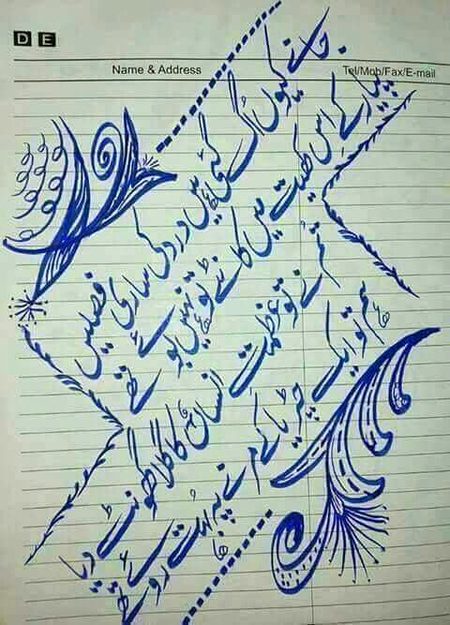 D E
Name & Address Tel/Mob/Fax/E-mail
جانے کیوں اُگ گئی ہیں درد کی ساری فصلیں
پیار کے اس کھیت میں کانٹے تو نہیں بوئے تھے
تم نے تو عظمت انسان کا گلا گھونٹ دیا
ہم تو ایک چڑیا کے مرنے پہ بہت روئے تھے